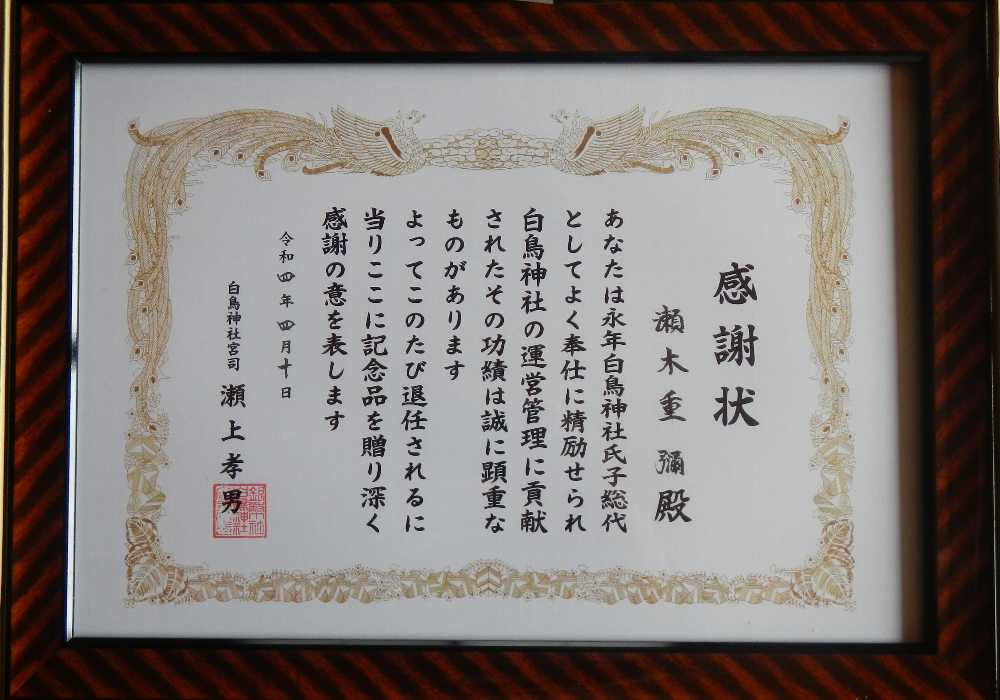 感謝状
瀬木重彌殿
あなたは永年白鳥神社氏子総代
としてよく奉仕に精励せられ
白鳥神社の運営管理に貢献
されたその功績は誠に顕重な
ものがあります
よってこのたび退任されるに
当りここに記念品を贈り深く
感謝の意を表します
令和四年四月十日
白鳥神社宮司 瀬上孝男